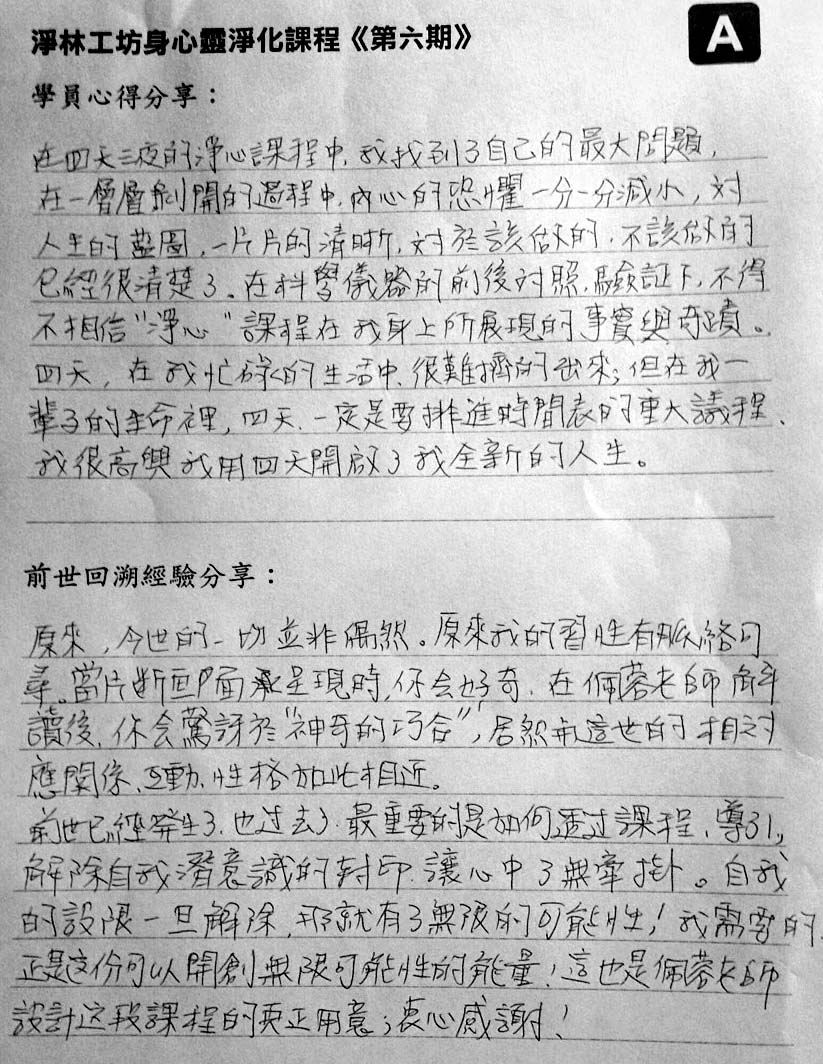 淨林工坊身心靈淨化課程《第六期》
A
學員心得分享：
在四天三夜的淨心課程中，我找到了自己的最大問題，
在一層層剝開的過程中，內心的恐懼一分一分減小，对
人生的藍圖，一片片的清晰，对於該做的，不該做的
已經很清楚了。在科學儀器的前後对照，驗証下，不得
不相信"淨心"課程在我身上所展現的事實與奇蹟。
四天，在我忙碌的生活中，很難擠的出來；但在我一
輩子的生命裡，四天，一定是要排進時間表的重大議程、
我很高興我用四天開啟了我全新的人生。
前世回溯經驗分享：
原來，今世的一切並非偶然。原來我的習性有脈絡可
尋。當片斷画面呈現時，你会好奇，在佩蓉老師解
讀後，你会驚訝於"神奇的巧合"，居然和這世的相对
應關係、互動、性格如此相近。
前世已經發生了，也过去了，最重要的是如何透过課程，導引，
解除自我潛意識的封印，讓心中了無牽掛。自我
的設限一旦解除，那就有了無限的可能性！我需要的
正是这份可以開創無限可能性的能量！這也是佩蓉老師
設計这段課程的真正用意；衷心感謝！